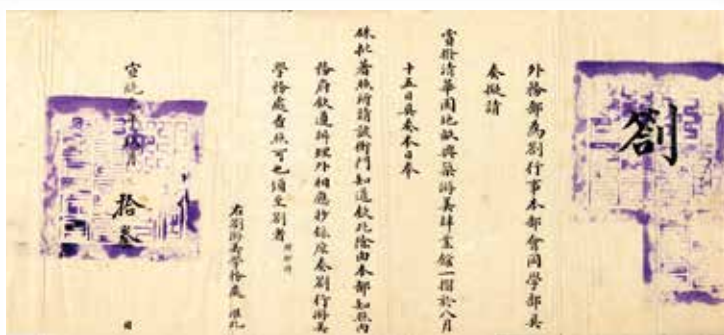 劄
外務部為劄行事本部會同學部具
奏擬請
賞撥清華園地畝興築游美肄業館一摺於八月
十五日具奏本日奉
硃批著照所請該衙門知道欽此除由本部知照內
務府欽遵辦理外相應抄錄原奏劄行游美
學務處查照可也須至劄者
右劄游美學務處 准此
宣統元年 月 拾叁